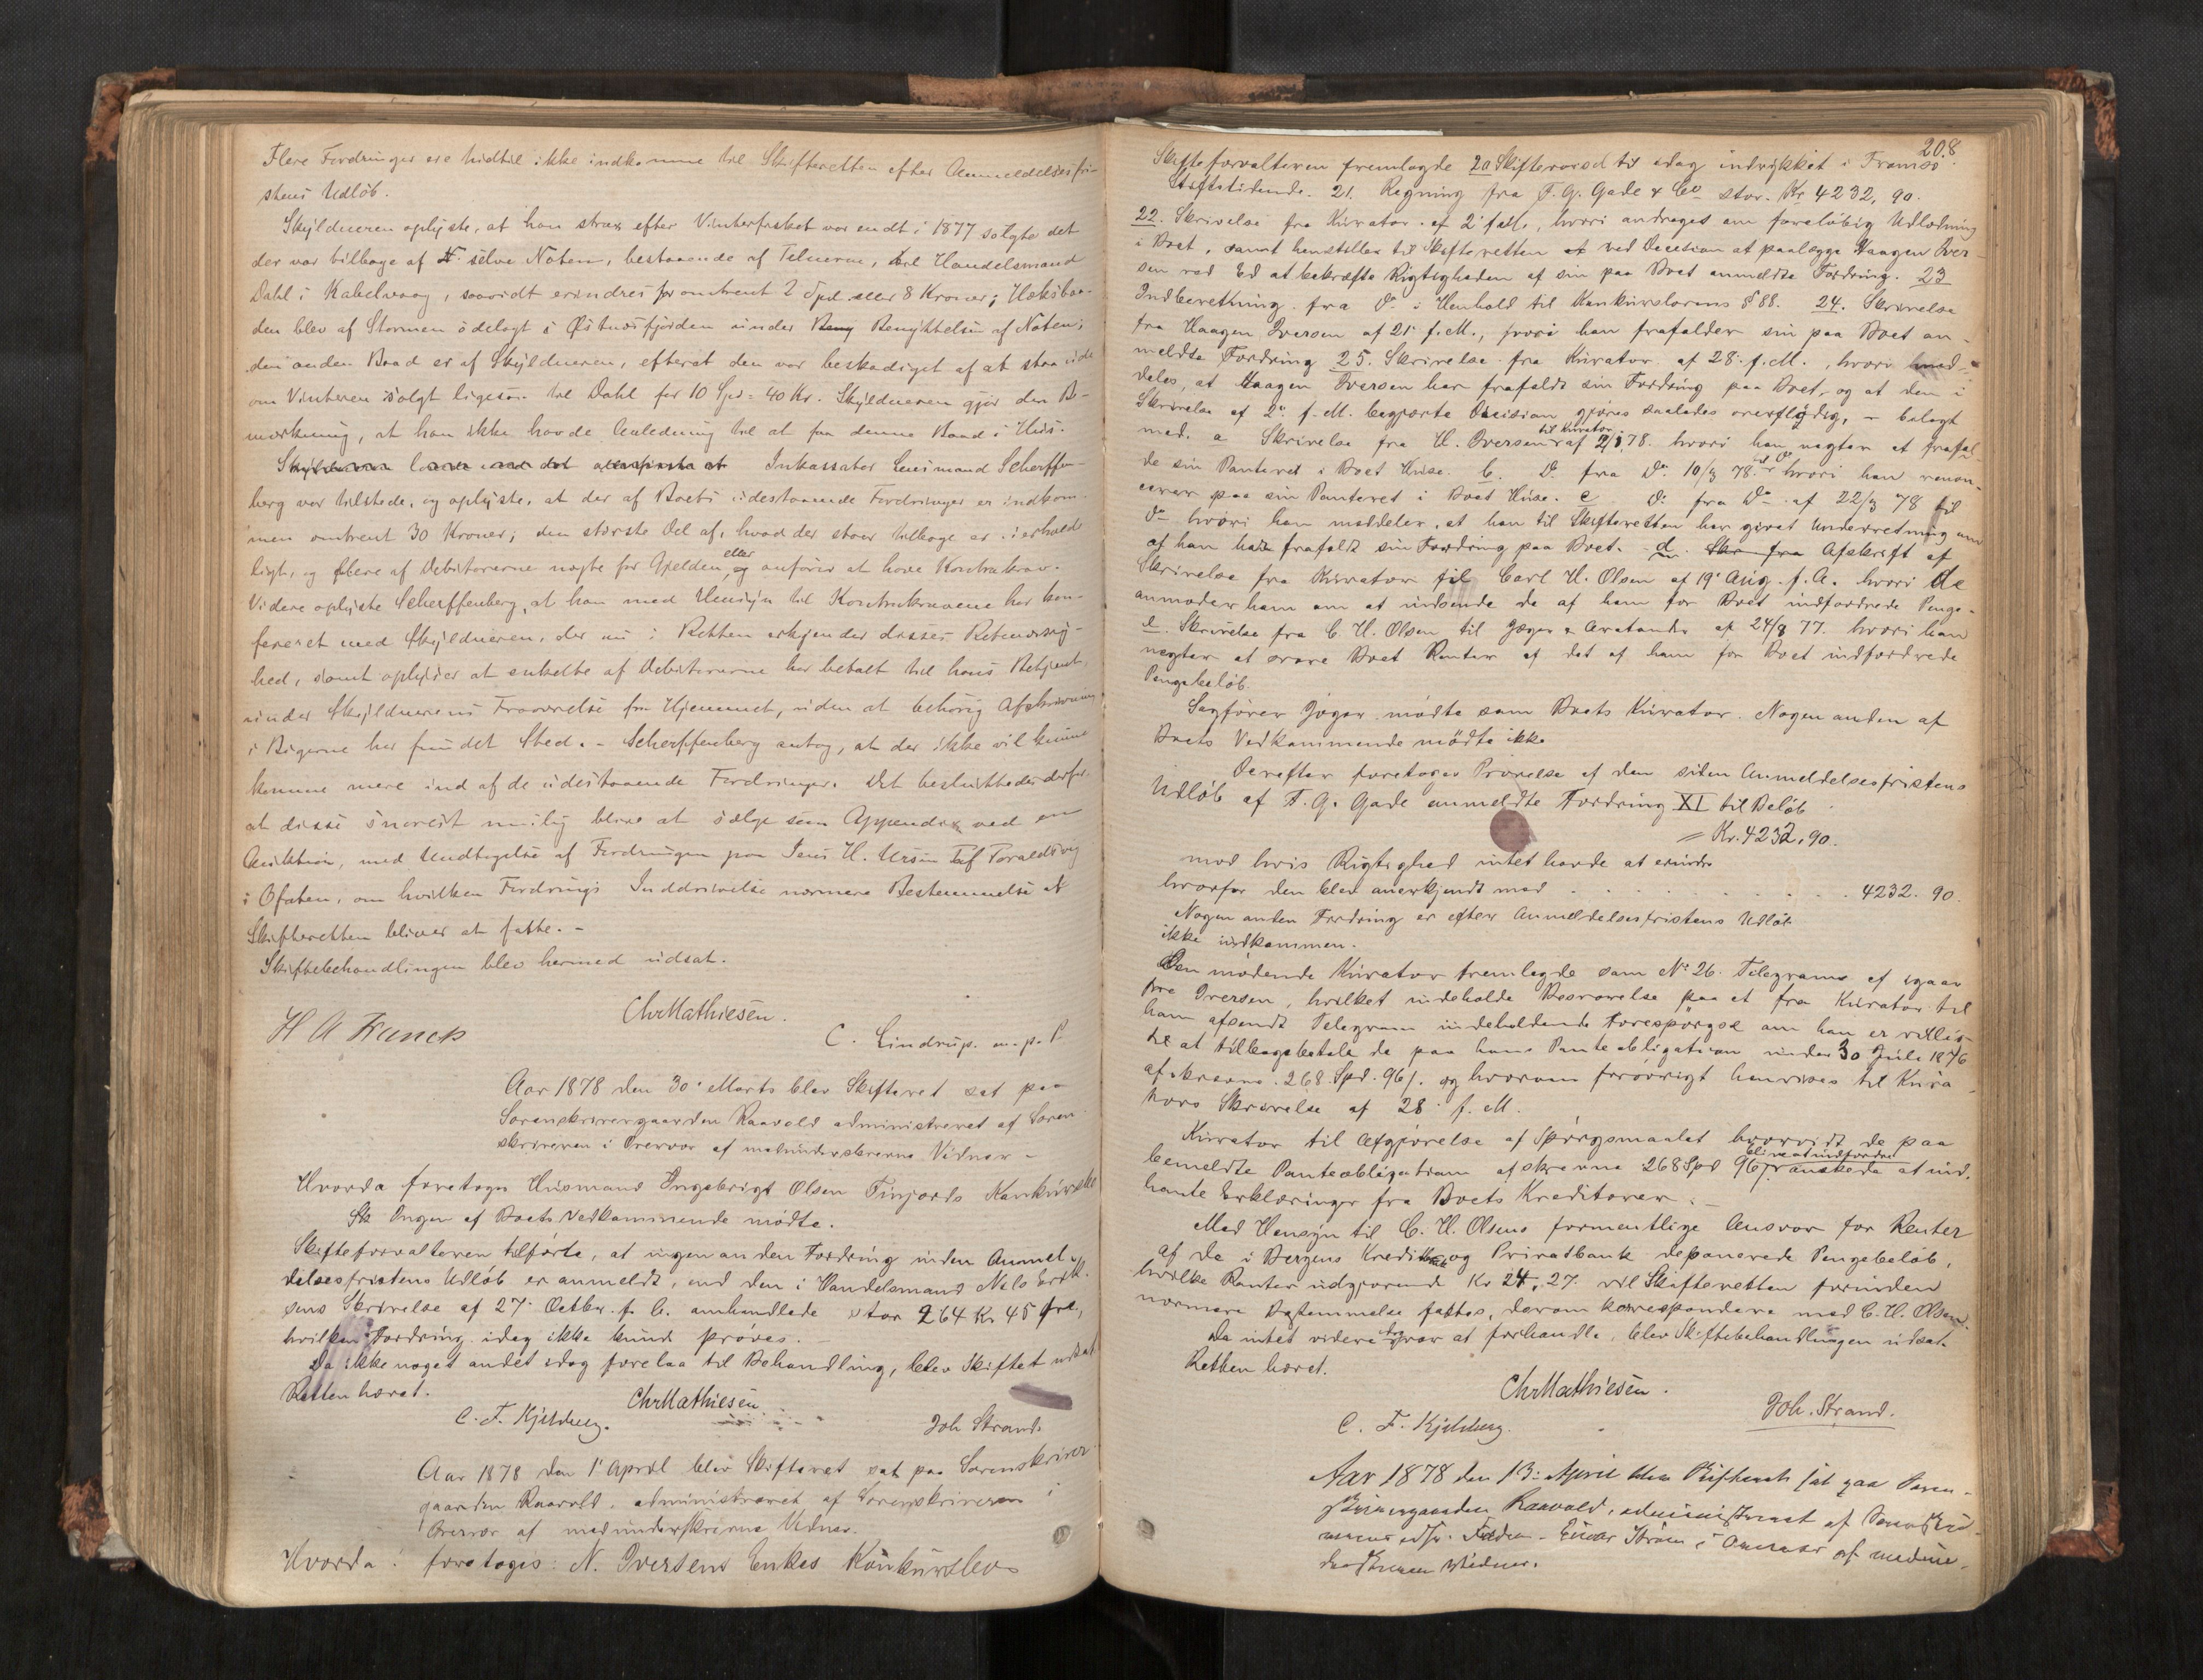 Flere Fordringer ere hidtil ikke indkomne til Skifteretten efter Anmeldelsesfri-
stens Udløb.
Skyldneren oplyste, at han strax efter Vinterfisket var endt i 1877 solgte det
der var tilbage af selve Noten, bestaaende af Telnerne, til Handelsmand
Dahl i Kabelvaag, saavidt erindres for omtrent 2 Spd eller 8 Kroner;
den blev af Stormen ødelagt i Østnæsfjorden under Benyttelsen af Noten;
den anden Baad er af Skyldneren, efterat den var beskadiget af at staa ude
om Vinteren solgt ligesom til Dahl for 10 Spd = 40 Kr. Skyldneren gjør den Be-
mærkning, at han ikke havde Anledning til at faa denne Baad i Hus.
Inkassator Lensmand Scherffen-
berg var tilstede, og oplyste, at der af Boets udestaaende Fordringer er indkom-
men omtrent 30 Kroner; den største Del af, hvad der staar tilbage er uerhold-
ligt, og flere af Debitorerne negte for Gjelden, eller anfører at have Kontrakrav.
Videre oplyste Scherffenberg, at han med Hensyn til Kontrakravene har kon-
fereret med Skyldneren, der nu i Retten erkjender disses Retmæssig-
hed, samt oplyser at enkelte af Debitorerne har betalt til hans Betjent,
under Skyldnerens Fraværelse fra Hjemmet, uden at behørig Afskrivning
i Bøgerne har fundet Sted. - Scherffenberg antog, at der ikke vil kunne
komme mere ind af de udestaaende Fordringer. Det besluttedes derfor
at disse snarest mulig blive at sælge som Appendix ved en
Auktion, med Undtagelse af Fordringen paa Jens H. Ursin af Taraldsvig
i Ofoten, om hvilken Fordrings Inddrivelse nærmere Bestemmelse af
Skifteretten bliver at fatte. -
Skiftebehandlingen blev hermed udsat.
Chr Mathiesen.
H A Franck
C. Lindrup. m. p. P.
Aar 1878 den 30' Marts blev Skifteret sat paa
Sorenskrivergaarden Raavold administreret af Soren
skriveren i Overvær af medunderskrevne Vidner -
Hvorda foretoges Husmand Ingebrigt Olsen Finjords Konkursbo
Ingen af Boets Vedkommende mødte.
Skifteforvalteren tilførte, at ingen anden Fordring inden Anmel-
delsesfristens Udløb er anmeldt, end den i Handelsmand Nels Erik-
sens Skrivelse af 27' Octbr. f. A. omhandlede stor 264 Kr 45 Øre,
hvilken Fordring idag ikke kunde prøves.
Da ikke noget andet idag forelaa til Behandling, blev Skiftet udsat
Retten hævet.
Chr Mathiesen
C. F. Kjelsberg.
Joh Strand.
Aar 1878 den 1' April blev Skifteret sat paa Sorenskriver
gaarden Raavold, administreret af Sorenskriveren i
Overvær af medunderskrevne Vidner.
Hvorda: foretoges: N. Iversens Enkes Konkursbo
208
Skifteforvalteren fremlagde 20 Skiftevarsel til idag indrykket i Tromsø
Stiftstidende. 21. Regning fra F. G. Gade & Co stor. Kr 4232, 90.
22. Skrivelse fra Kurator af 2' f.M., hvori andrages om foreløbig Udlodning
i Boet, samt henstilles til Skifteretten ved Decision at paalægge Haagen Iver-
sen ved Ed at bekræfte Rigtigheden af sin paa Boet anmeldte Fordring. 23
Indberetning fra Do i Henhold til Konkurslovens § 88. 24. Skrivelse
fra Haagen Iversen af 21' f.M., hvori han frafalder sin paa Boet an-
meldte Fordring 25. Skrivelse fra Kurator af 28. f.M., hvori med-
deles, at Haagen Iversen har frafaldt sin Fordring paa Boet, og at den i
Skrivelse af 2' f.M. begjærte Decision gjøres saaledes overflødig, - bilagt
med. a Skrivelse fra H. Iversen til Kurator af 2/1 78. hvori han negter at frafal-
de sin Panteret i Boet Huse. b. Do fra Do 10/3 78. hvori han renon-
cerer paa sin Panteret i Boet Huse. c Do fra Do af 22/3 78 til
Do hvori han meddeler, at han til Skifteretten har givet Underretning om
at han har frafaldt sin Fordring paa Boet. d. Afskrift af
Skrivelse fra Kurator til Carl H. Olsen af 19' Aug. f. A. hvori de
anmoder ham om at indsende de af ham for Boet indfordrede Penge.
e. Skrivelse fra C. H. Olsen til Jæger af 24/8 77. hvori han
negter at svare Boet Renter af det af ham for Boet indfordrede
Pengebeløb.
Sagfører Jæger mødte som Boets Kurator. Nogen anden af
Boets Vedkommende mødte ikke
Derefter foretoges Prøvelse af den siden Anmeldelsesfristens
Udløb af F. G. Gade anmeldte Fordring XI til Beløb
= Kr. 4232, 90.
mod hvis Rigtighed intet havde at erindre
hvorfor den blev anerkjendt med . . . . . . 4232. 90.
Nogen anden Fordring er efter Anmeldelsesfristens Udløb
ikke indkommen.
Den mødende Kurator fremlagde som No 26. Telegram af igaar
fra Iversen, hvilket indeholdt Besvarelse paa et fra Kurator til
ham afsendt Telegram indeholdende Forespørgsel om han er villig
til at tilbagebetale de paa hans Panteobligation under 30 Juli 1876
afskrevne 268 Spd. 96 s. og hvorom forøvrigt henvises til Kura-
tors Skrivelse af 28' f. M.
Kurator til Afgjørelse af Spørgsmaalet hvorvidt de paa
bemeldte Panteobligation afskrevne 268 Spd 96 s. blive at indfordre ønskede at ind-
hente Erklæringer fra Boets Kreditorer.
Med Hensyn til C. H. Olsens formentlige Ansvar for Renter
af de i Bergens Kredit og Privatbank deponerede Pengebeløb,
hvilke Renter udgjorde Kr 24, 27. vil Skifteretten forinden
nærmere Bestemmelse fattes, derom korrespondere med C. H. Olsen.
Da intet videre var at forhandle, blev Skiftebehandlingen udsat.
Retten hævet.
Chr Mathiesen.
C. F. Kjelsberg.
Joh. Strand.
Aar 1878 den 13: April blev Skifteret sat paa Soren-
skrivergaarden Raavold, administreret af Sorenskri-
verens edsv. Fuldm. Einar Strøm i Overvær af medun-
derskrevne Vidner.